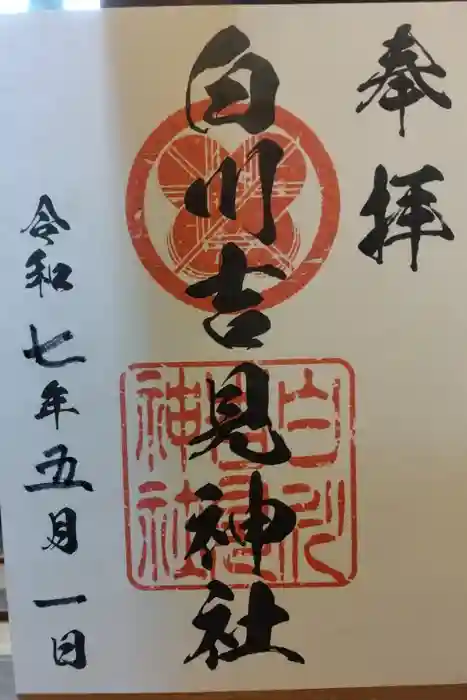 奉拝
白川吉見神社
白川
吉見
神社
令和七年五月一日